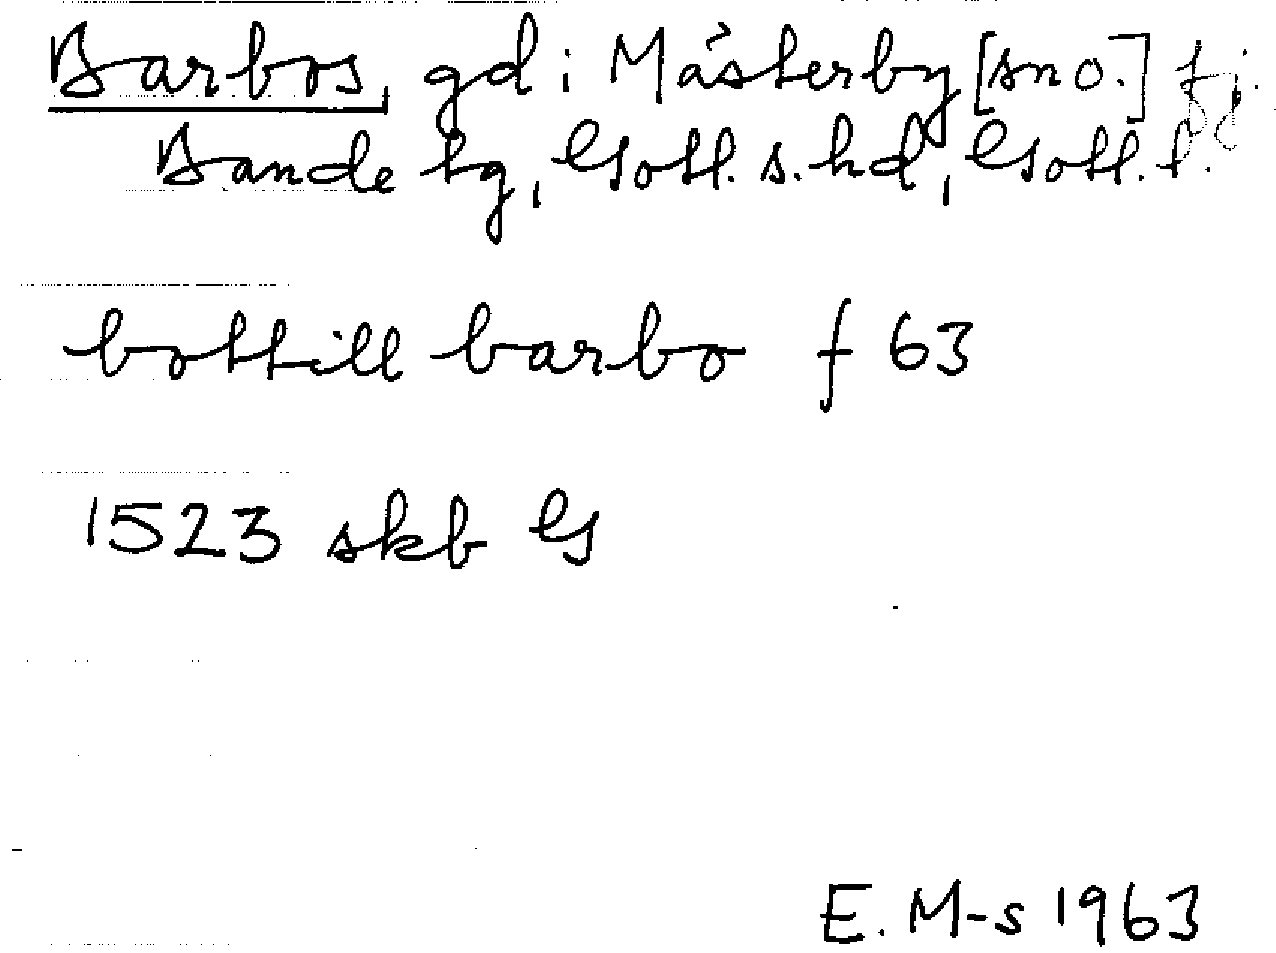 Barbos, gd i Mästerby [sn o.] fj.
Bande tg, Gotl. s. hd, Gotl. l.
bottill barbo f 63
1523 skb G
E. M-s 1963